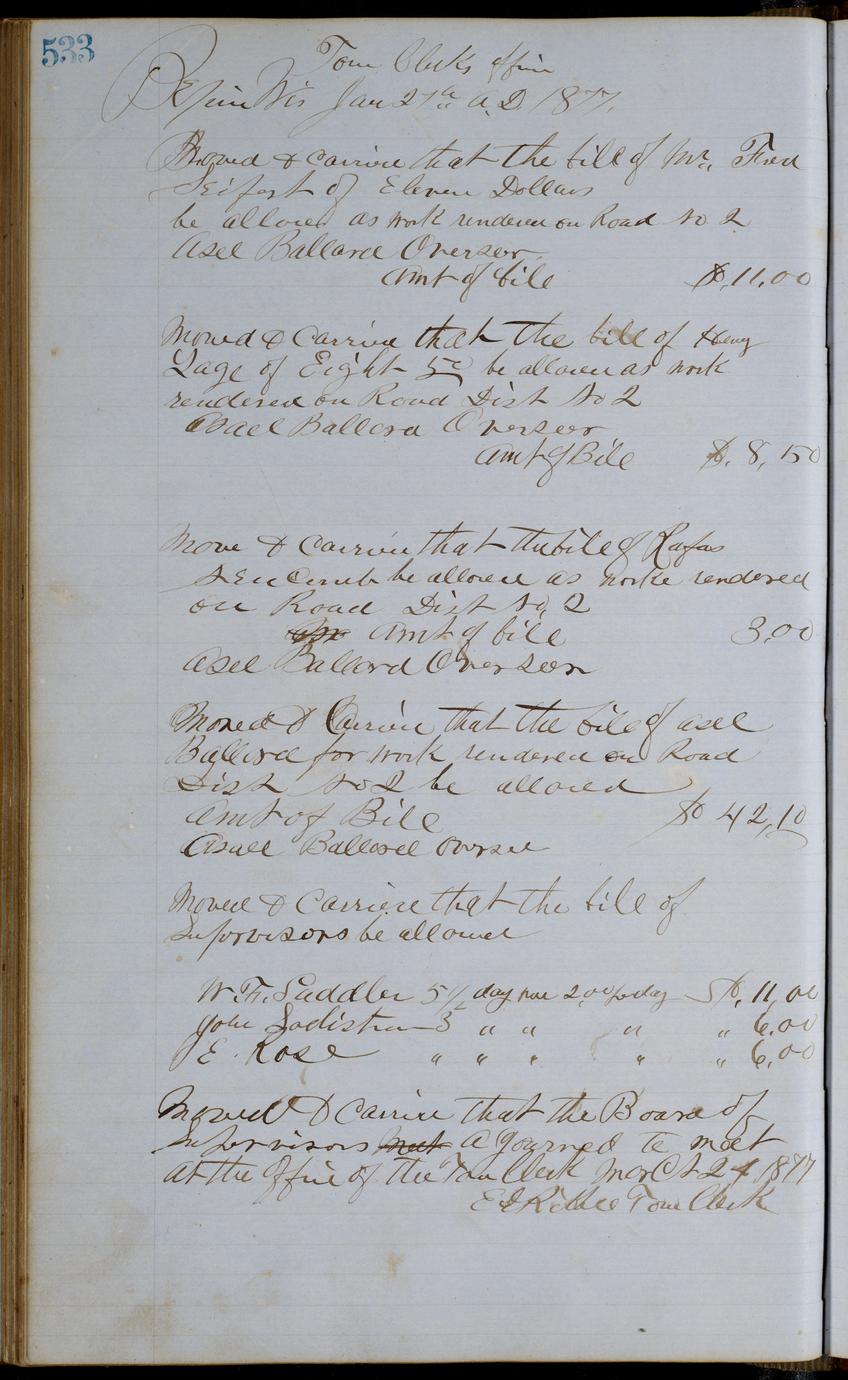 533
Town Clerks office
Pepin Wis Jan 27th A.D. 1877.
Moved & carried that the bill of Mr. Fred
Seifert of Eleven Dollars
be allowed as work rendered on Road No 2
Asel Ballard Overseer
Amt of bill $.11.00
Moved & Carried that the bill of Heny
Lage of Eight 50 be allowed as work
rendered on Road Dist No 2
Asael Ballard Overseer
Amt of Bill $. 8,50
Move & Carried that the bill of Rufas
be allowed as worke rendered
on Road Dist No, 2
Amt of bill 3,00
Asel Balard Overseer
Moved & Carried that the bill of asel
Ballard for work rendered on Road
Dist No 2 be allowed
Amt of Bill $ 42,10
Asael Ballard oversee
Moved & Carried that the bill of
Supervisors be allowed
W. F. Saddler 5 1/2 day 2,00 per day $. 11,00
John 3 " " " " 6.00
E. Rose " " " " " 6,00
Moved & Carried that the Board of
Supervisors meet agourned to meet
at the office of the Town Clerk March 24 1877
Town Clerk